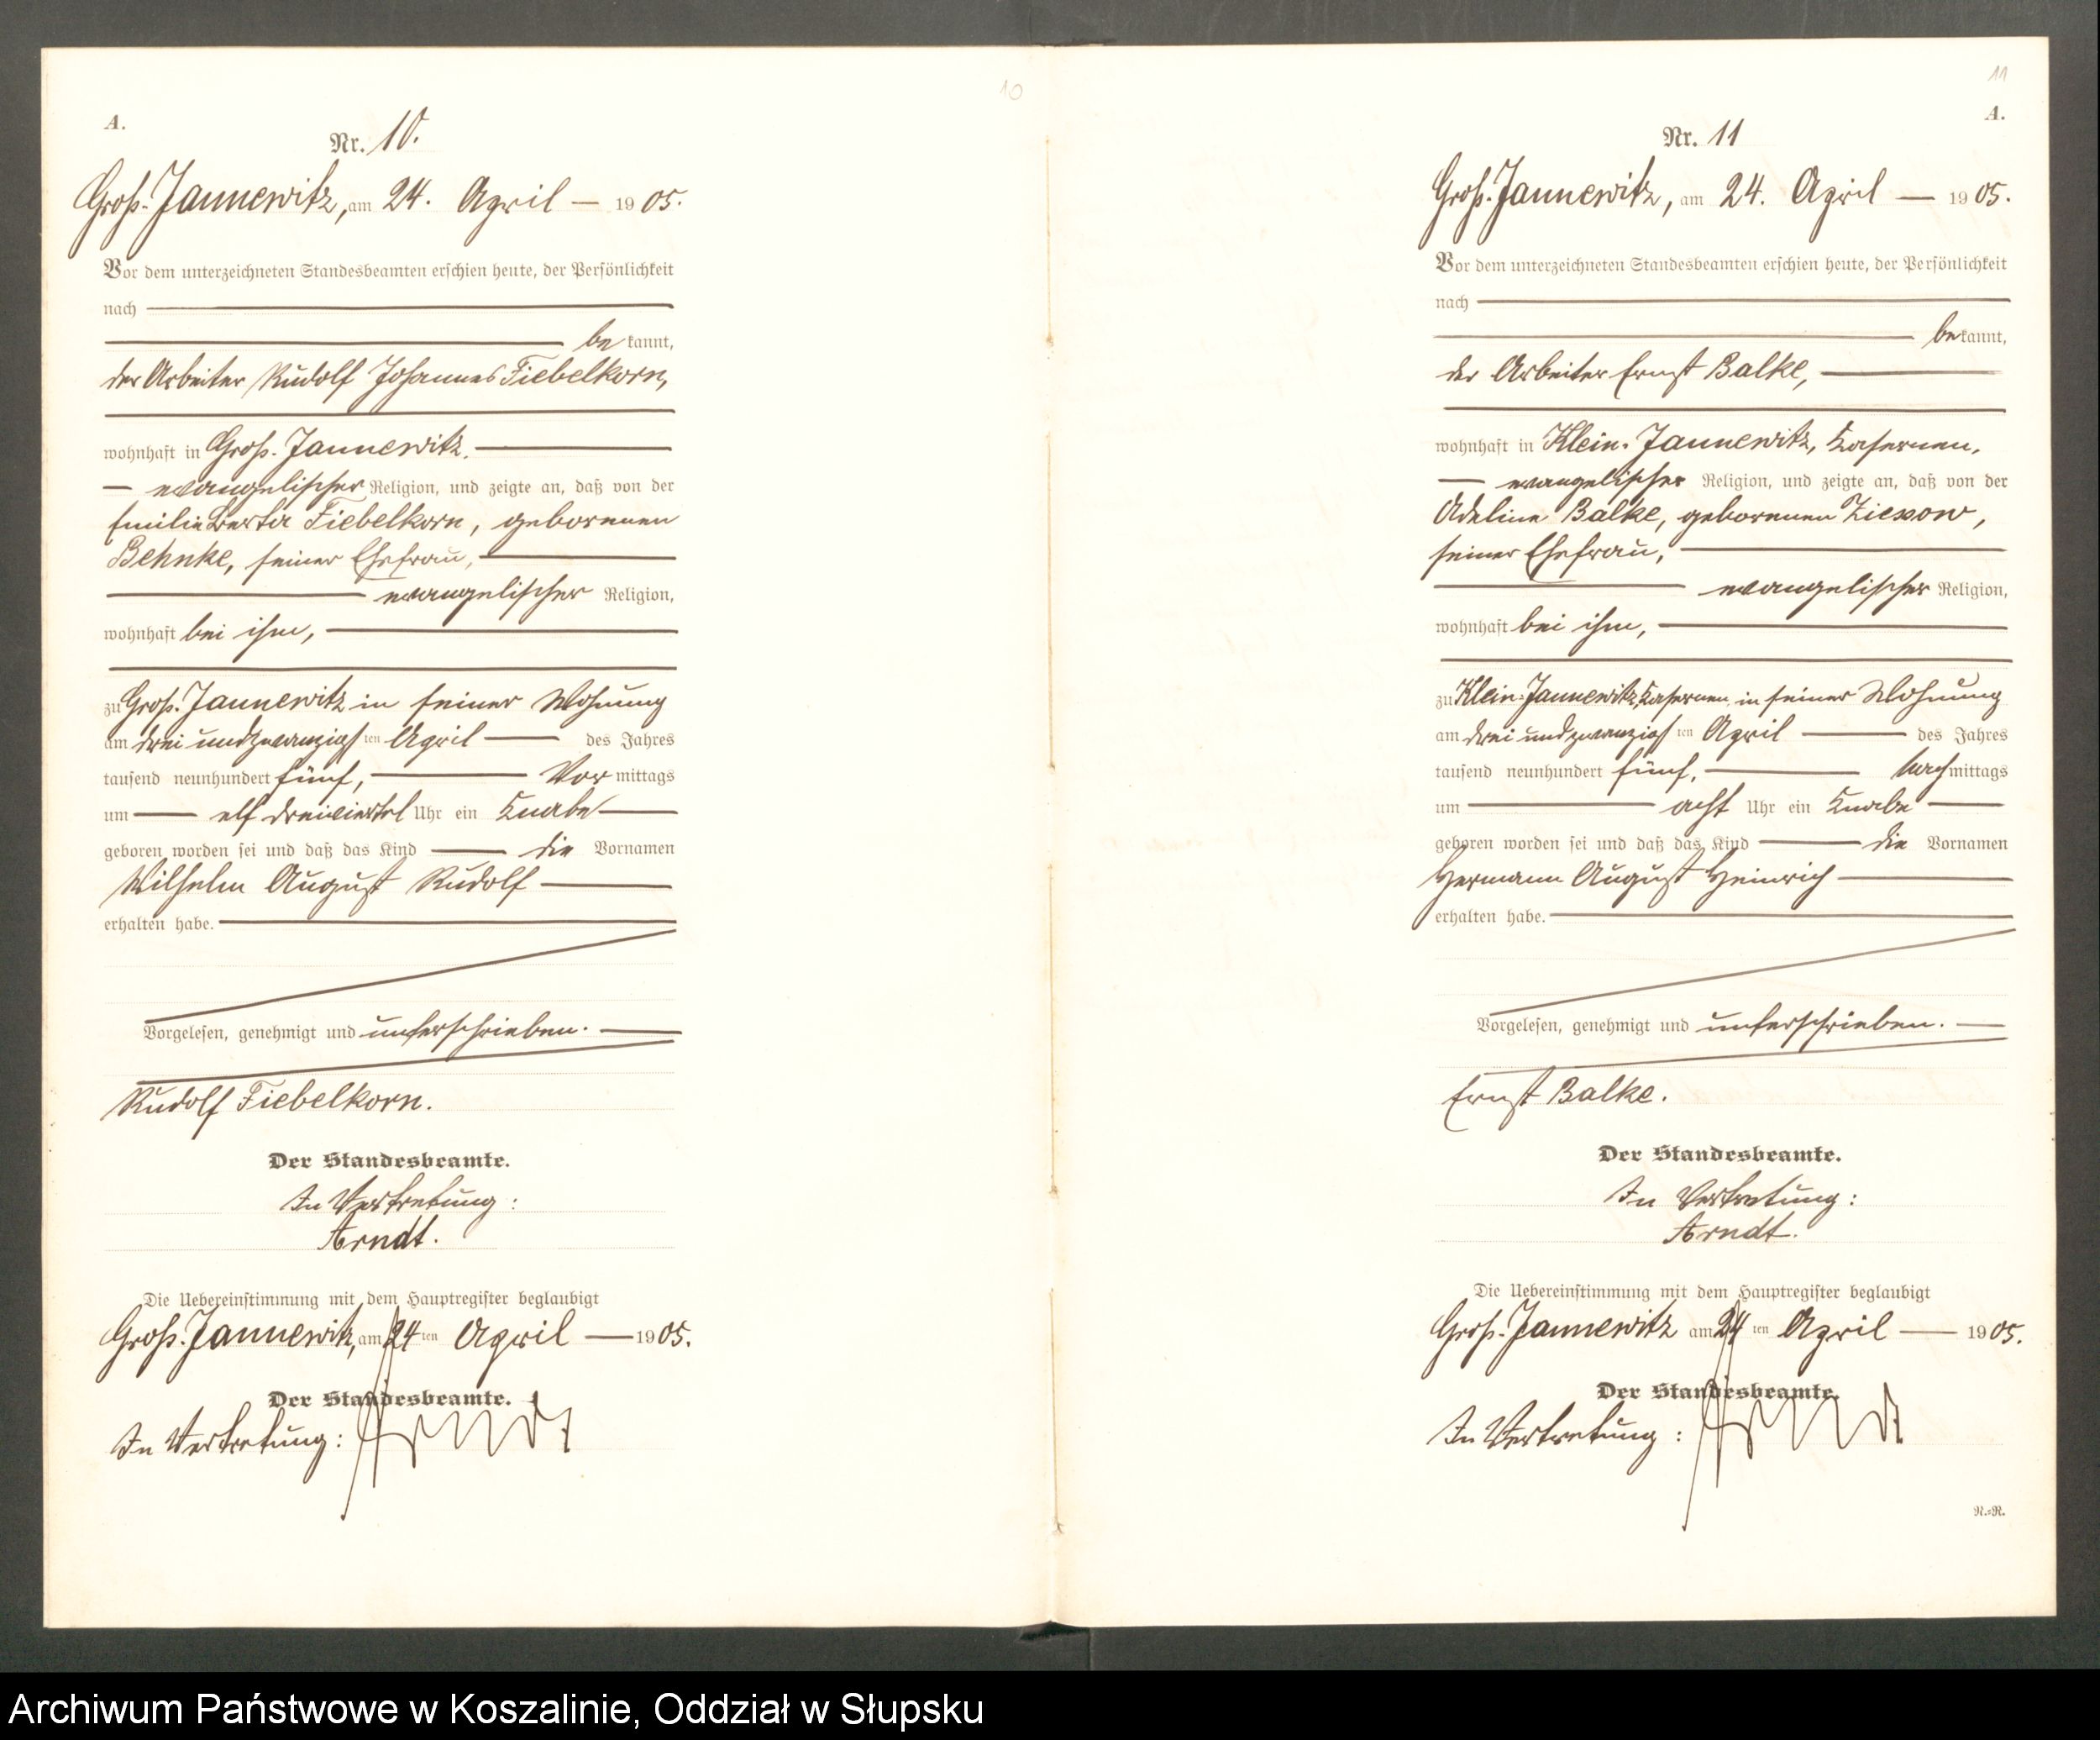 10
A.
Nr. 10.
Groß-Jannewitz, am 24. April — 1905.
Vor dem unterzeichneten Standesbeamten erschien heute, der Persönlichkeit
nach
bekannt,
der Arbeiter Rudolf Johannes Fiebelkorn,
wohnhaft in Groß-Jannewitz,
evangelischer Religion, und zeigte an, daß von der
Emilie Berta Fiebelkorn, geborenen
Behnke, seiner Ehefrau,
evangelischer Religion,
wohnhaft bei ihm,
zu Groß-Jannewitz in seiner Wohnung
am drei und zwanzigsten April des Jahres
tausend neunhundert fünf, Vormittags
um elf dreiviertel Uhr ein Knabe
geboren worden sei und daß das Kind die Vornamen
Wilhelm August Rudolf
erhalten habe.
Vorgelesen, genehmigt und unterschrieben.
Rudolf Fiebelkorn.
Der Standesbeamte.
In Vertretung:
Arndt.
Die Uebereinstimmung mit dem Hauptregister beglaubigt
Groß-Jannewitz, am 24ten April — 1905.
Der Standesbeamte.
In Vertretung: Arndt
11
A.
Nr. 11
Groß-Jannewitz, am 24. April — 1905.
Vor dem unterzeichneten Standesbeamten erschien heute, der Persönlichkeit
nach
bekannt,
der Arbeiter Ernst Balke,
wohnhaft in Klein-Jannewitz, Kasernen,
evangelischer Religion, und zeigte an, daß von der
Adeline Balke, geborenen
seiner Ehefrau,
evangelischer Religion,
wohnhaft bei ihm,
zu Klein-Jannewitz, Kasernen, in seiner Wohnung
am drei und zwanzigsten April des Jahres
tausend neunhundert fünf, Nachmittags
um acht Uhr ein Knabe
geboren worden sei und daß das Kind die Vornamen
Hermann August Heinrich
erhalten habe.
Vorgelesen, genehmigt und unterschrieben.
Ernst Balke.
Der Standesbeamte.
In Vertretung:
Arndt.
Die Uebereinstimmung mit dem Hauptregister beglaubigt
Groß-Jannewitz am 24ten April — 1905.
Der Standesbeamte.
In Vertretung: Arndt
R.=R.
Archiwum Państwowe w Koszalinie, Oddział w Słupsku